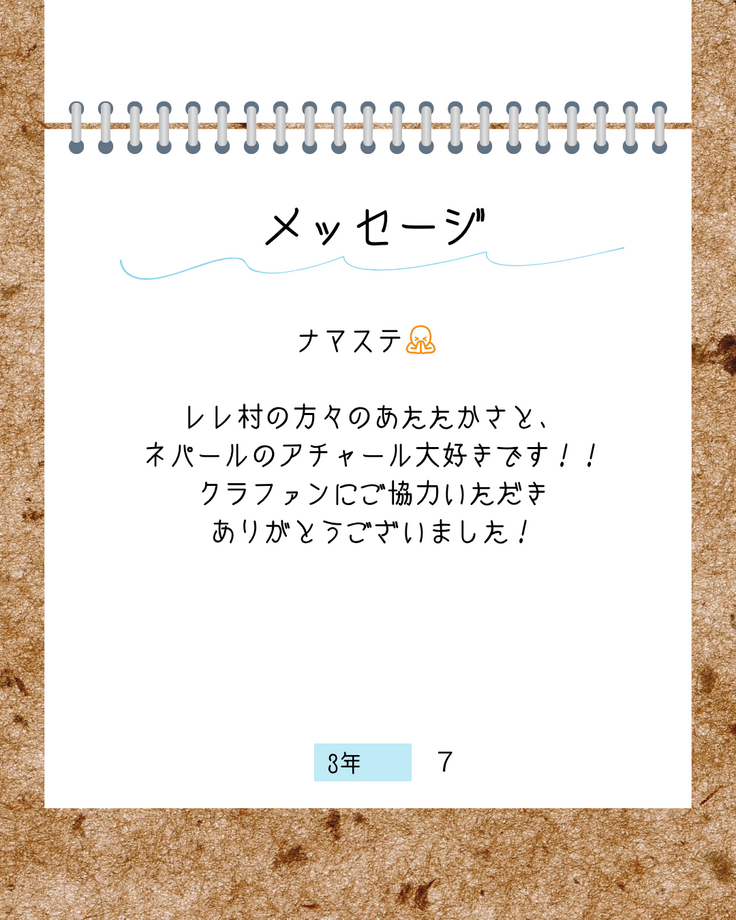 メッセージ
ナマステ
レレ村の方々のあたたかさと、
ネパールのアチャール大好きです！！
クラファンにご協力いただき
ありがとうございました！
3年 7